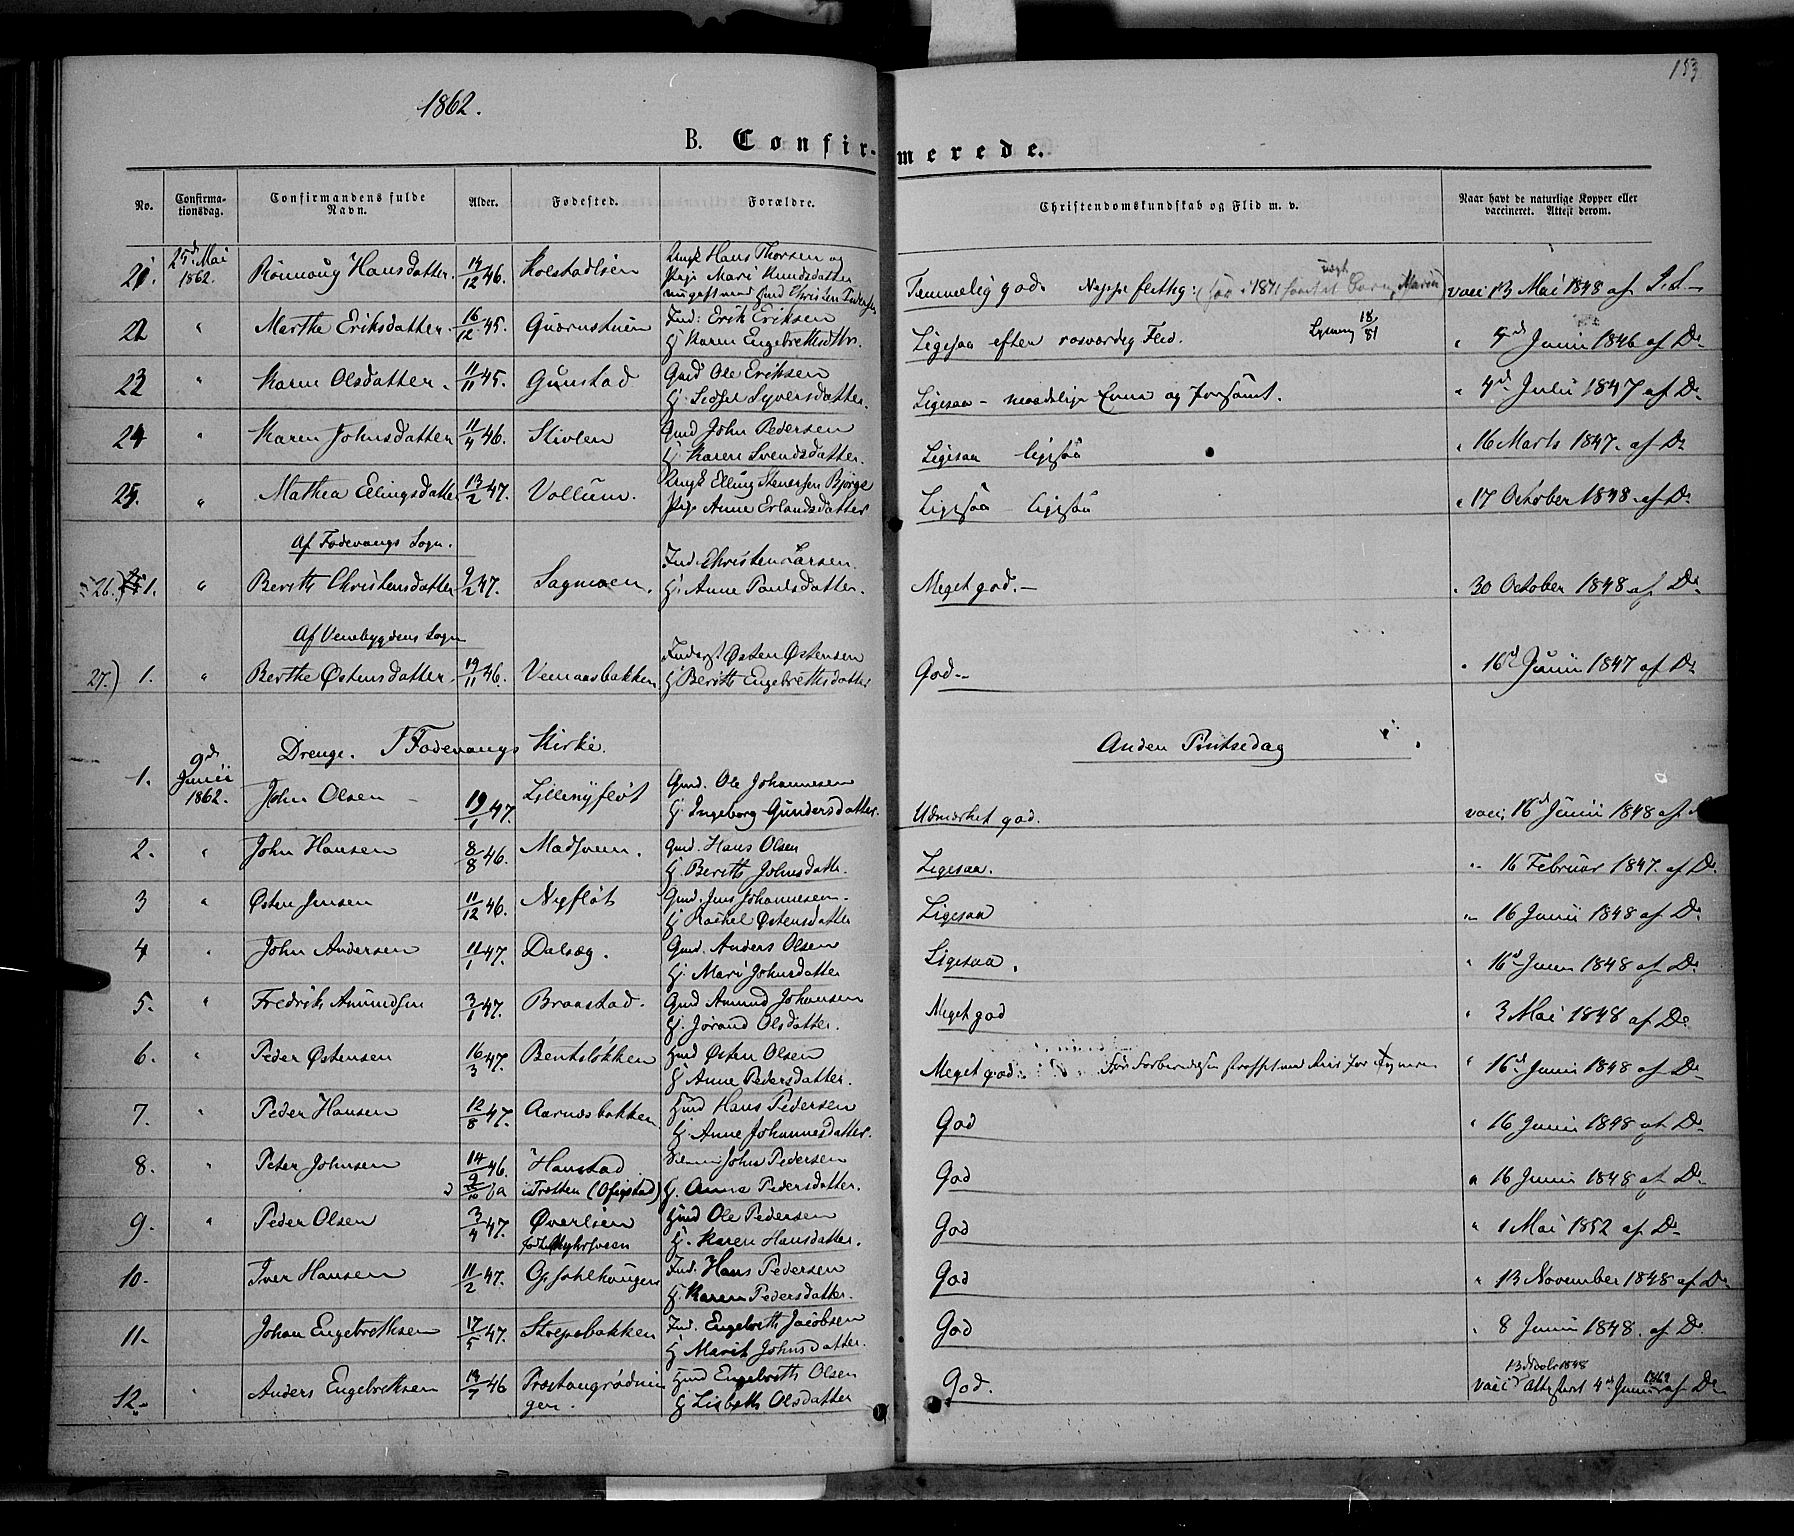 183
1862.
B. Confirmerede.
No. Confirmationsdag. Confirmandens fulde Navn. Alder. Fødested. Forældre. Christendomskundskab og Flid m. v. Naar havt de naturlige Kopper eller vaccineret. Attest derom.
21. 25d Mai 1862. Rønnaug Hansdatter. 14/12 46. Kolstadlien Ungk Hans Thorsen og
Pige Mari Knudsdatter
Temmelig god. Neppe flittig. vacc 13 Mai 1848 af
22 " Marthe Eriksdatter. 16/12 45. Ind: Erik Eriksen
Hj Karen Engebrethsdtr.
Ligesaa efter Flid. Lysning 18/81 " Junii 1846 af Do
23 " Karen Olsdatter. 11/11 45. Gunstad Gmd Ole Eriksen
Hj. Sidsel Syversdatter.
Ligesaa - maadelige Evner og forsømt. " 4d Julii 1847 af Do
24 " Karen Johnsdatter 11/4 46. Stivlen Gmd John Pedersen
Hj. Karen Svendsdatter.
Ligesaa ligesaa " 16 Marts 1847. af Do
25. " Mathea Ellingsdatter 13/2 47. Vollum. Ungk Elling Stenersen Bjørge
Pige Anne Erlandsdatter
Ligesaa ligesaa " 17 October 1848 af Do
Af Fodevangs Sogn.
26.) 1. " Berith Christensdatter 9/2 47. Sagmoen. Ind Christen Larsen.
Hj. Anne Paulsdatter.
Meget god. - " 30 October 1848 af Do
Af Venebygdens Sogn
27.) 1. " Berthe Østensdatter. 19/11 46. Vemaasbakken Inderst Østen Østensen
Hj Berith Engebrethsdatter
God. - " 16d Junii 1847 af Do
Drenge. I Fodevangs Kirke. Anden Pintsedag
1. 9d Junii 1862. John Olsen 19/1 47. Lillenyfløt Gmd. Ole Johannesen
Hj. Ingeborg Gundersdatter.
Udmærket god. vacc. 16d Junii 1848 af
2. " John Hansen 8/8 46. Madsveen. Gmd. Hans Olsen
Hj. Berith Johnsdatter.
Ligesaa. " 16 Februar 1847. af Do.
3 " Østen Jensen 11/12 46. Nyfløt Gmd. Jens Johannesen.
Hj Rachel Østensdatter
Ligesaa " 16 Junii 1848 af Do
4 " John Andersen 11/1 47. Dalseg. Gmd. Anders Olsen
Hj. Mari Johnsdatter
Ligesaa. " 16d Junii 1848 af Do
5. " Fredrik Amundsen 3/1 47. Braastad. Gmd Amund Johansen
Hj. Jørand Olsdatter.
Meget god " 3 Mai 1848 af Do
6. " Peder Østensen 16/3 47. Bentsløkken Hmd Østen Olsen
Hj Anne Pedersdatter.
Meget god. Før Forberedelsen straffet med Riis for " 16d Junii 1848 af Do
7. " Peder Hansen 12/8 47. Aarnesbakken Hmd Hans Pedersen
Hj. Anne Johannesdatter.
God " 16 Junii 1848 af Do
8. " Peter Johnsen 14/9 46. Hanstad John Pedersen
i Trætten (Ofigstad) Hj. Anna Pedersdatter.
God " 16 Junii 1848 af Do
9. " Peder Olsen 3/4 47. Øverlien Hmd Ole Pedersen
Hj. Karen Hansdatter.
God " 1 Mai 1852 af Do
10. Iver Hansen 11/2 47. Opsahlhaugen Ind. Hans Pedersen
Hj. Karen Pedersdatter.
God " 13 November 1848 af Do
11. Johan Engebrethsen 17/5 47. Strepabakken Ind. Engebreth Jacobsen
Hj Marit Johnsdatter.
God " 8 Junii 1848. af Do
12. " Anders Engebrethsen 46 Præstangrødningen. Hmd Engebreth Olsen
Hj Lisbeth Olsdatter
God. vacc. 13 Novbr 1848 Attesteret 4d Junii 1862 af Do